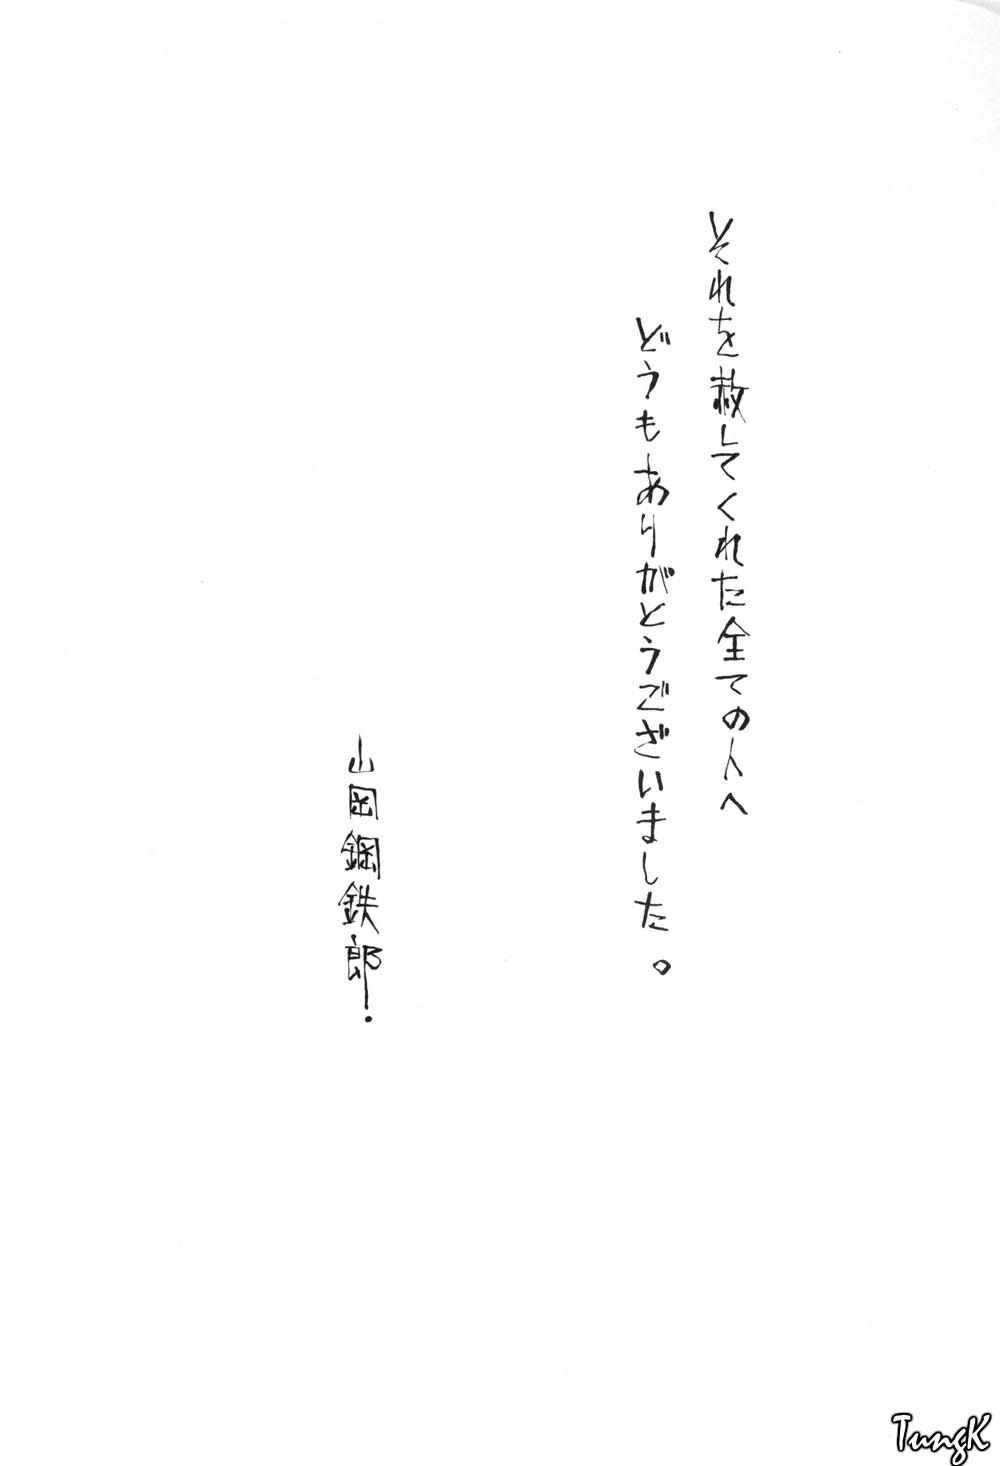 それを赦してくれた全ての人へ
どうもありがとうございました。
山岡鋼鉄郎.
TungK